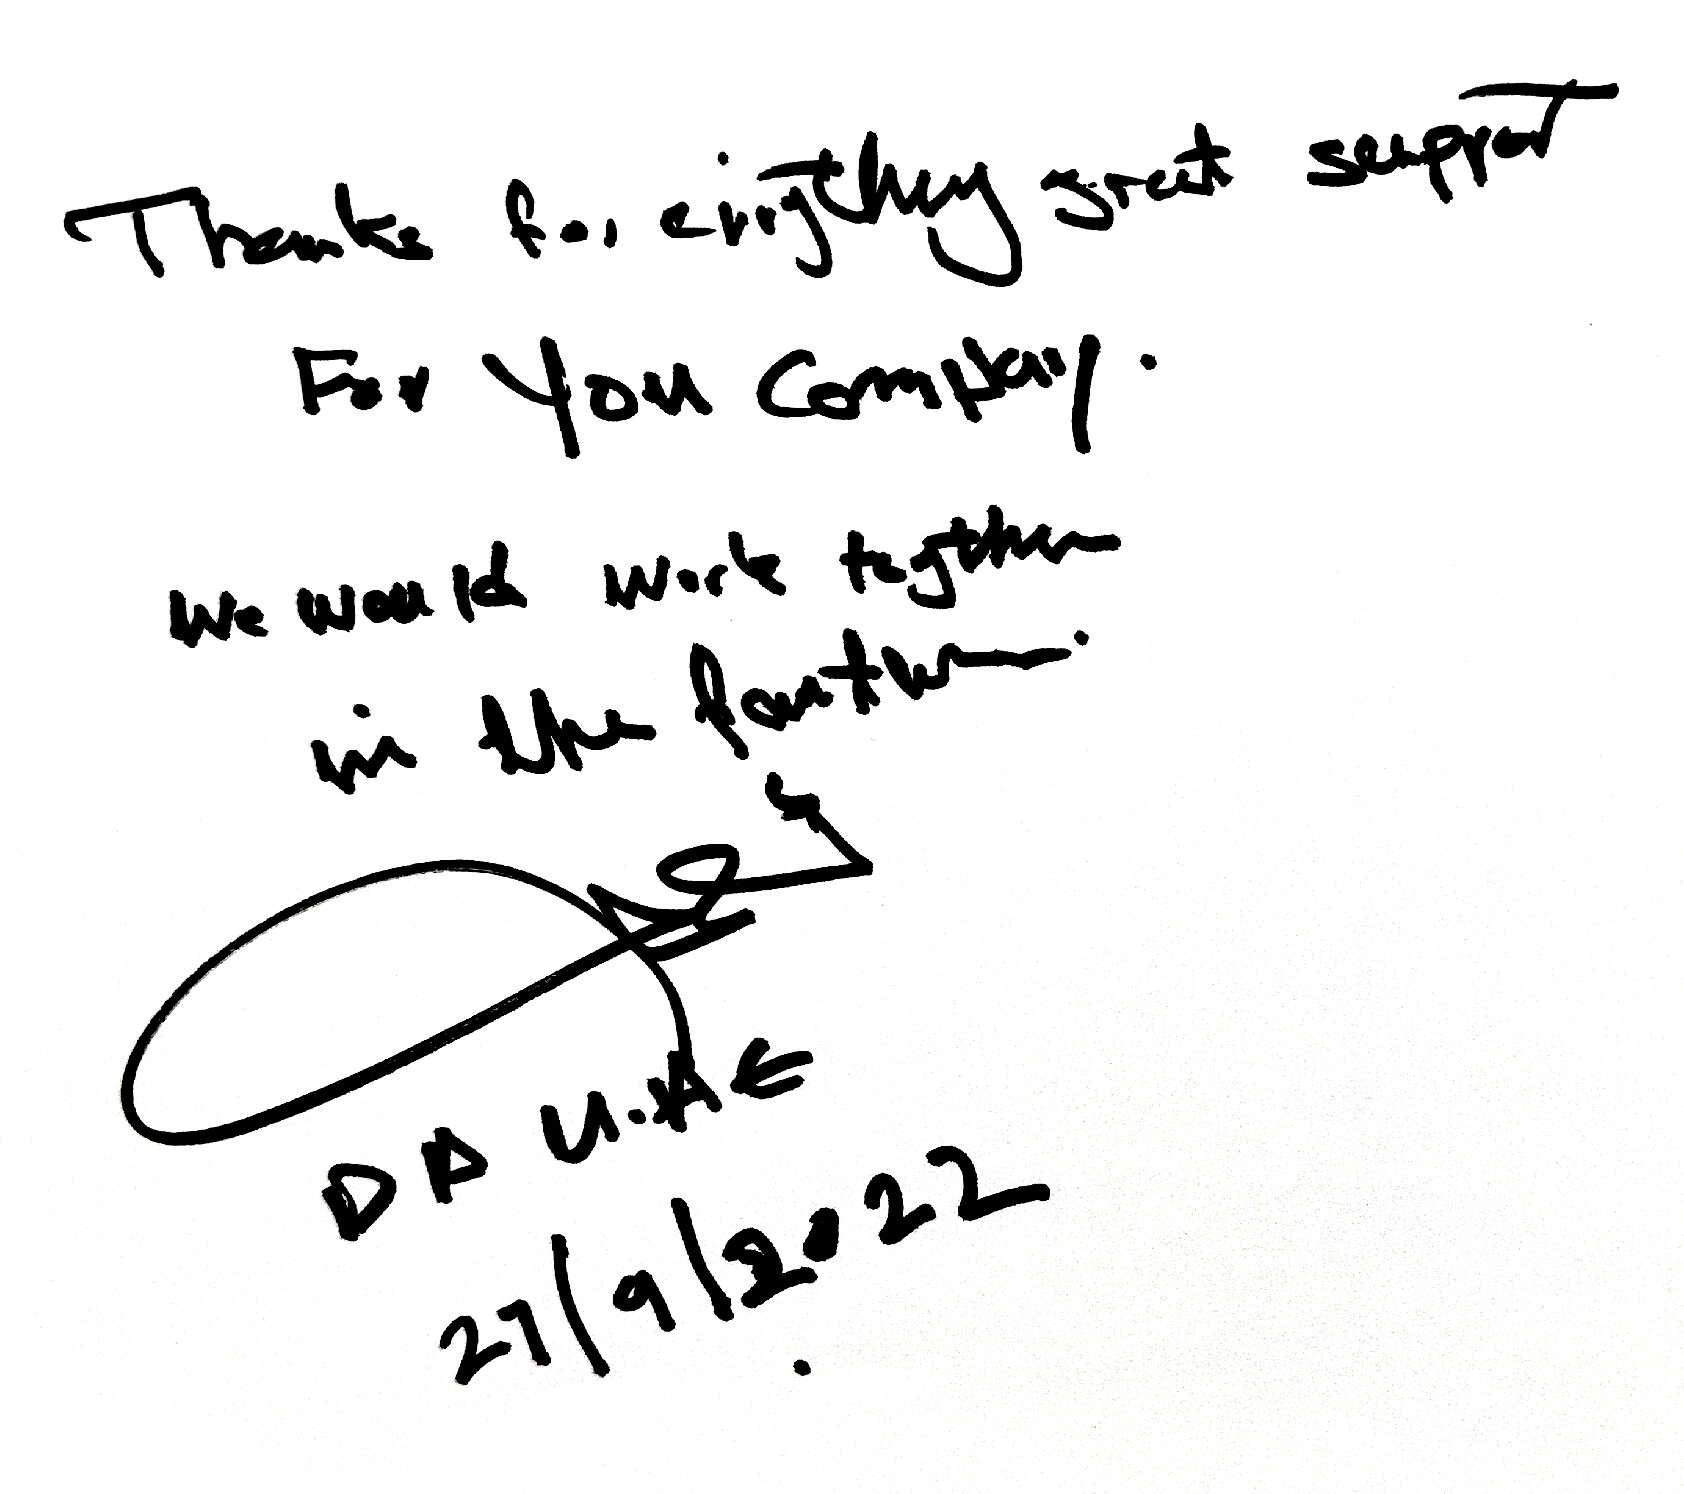 Thanks for everything great support
For You Company.
We would work together
in the fauture.
DP U.AE
27/9/2022